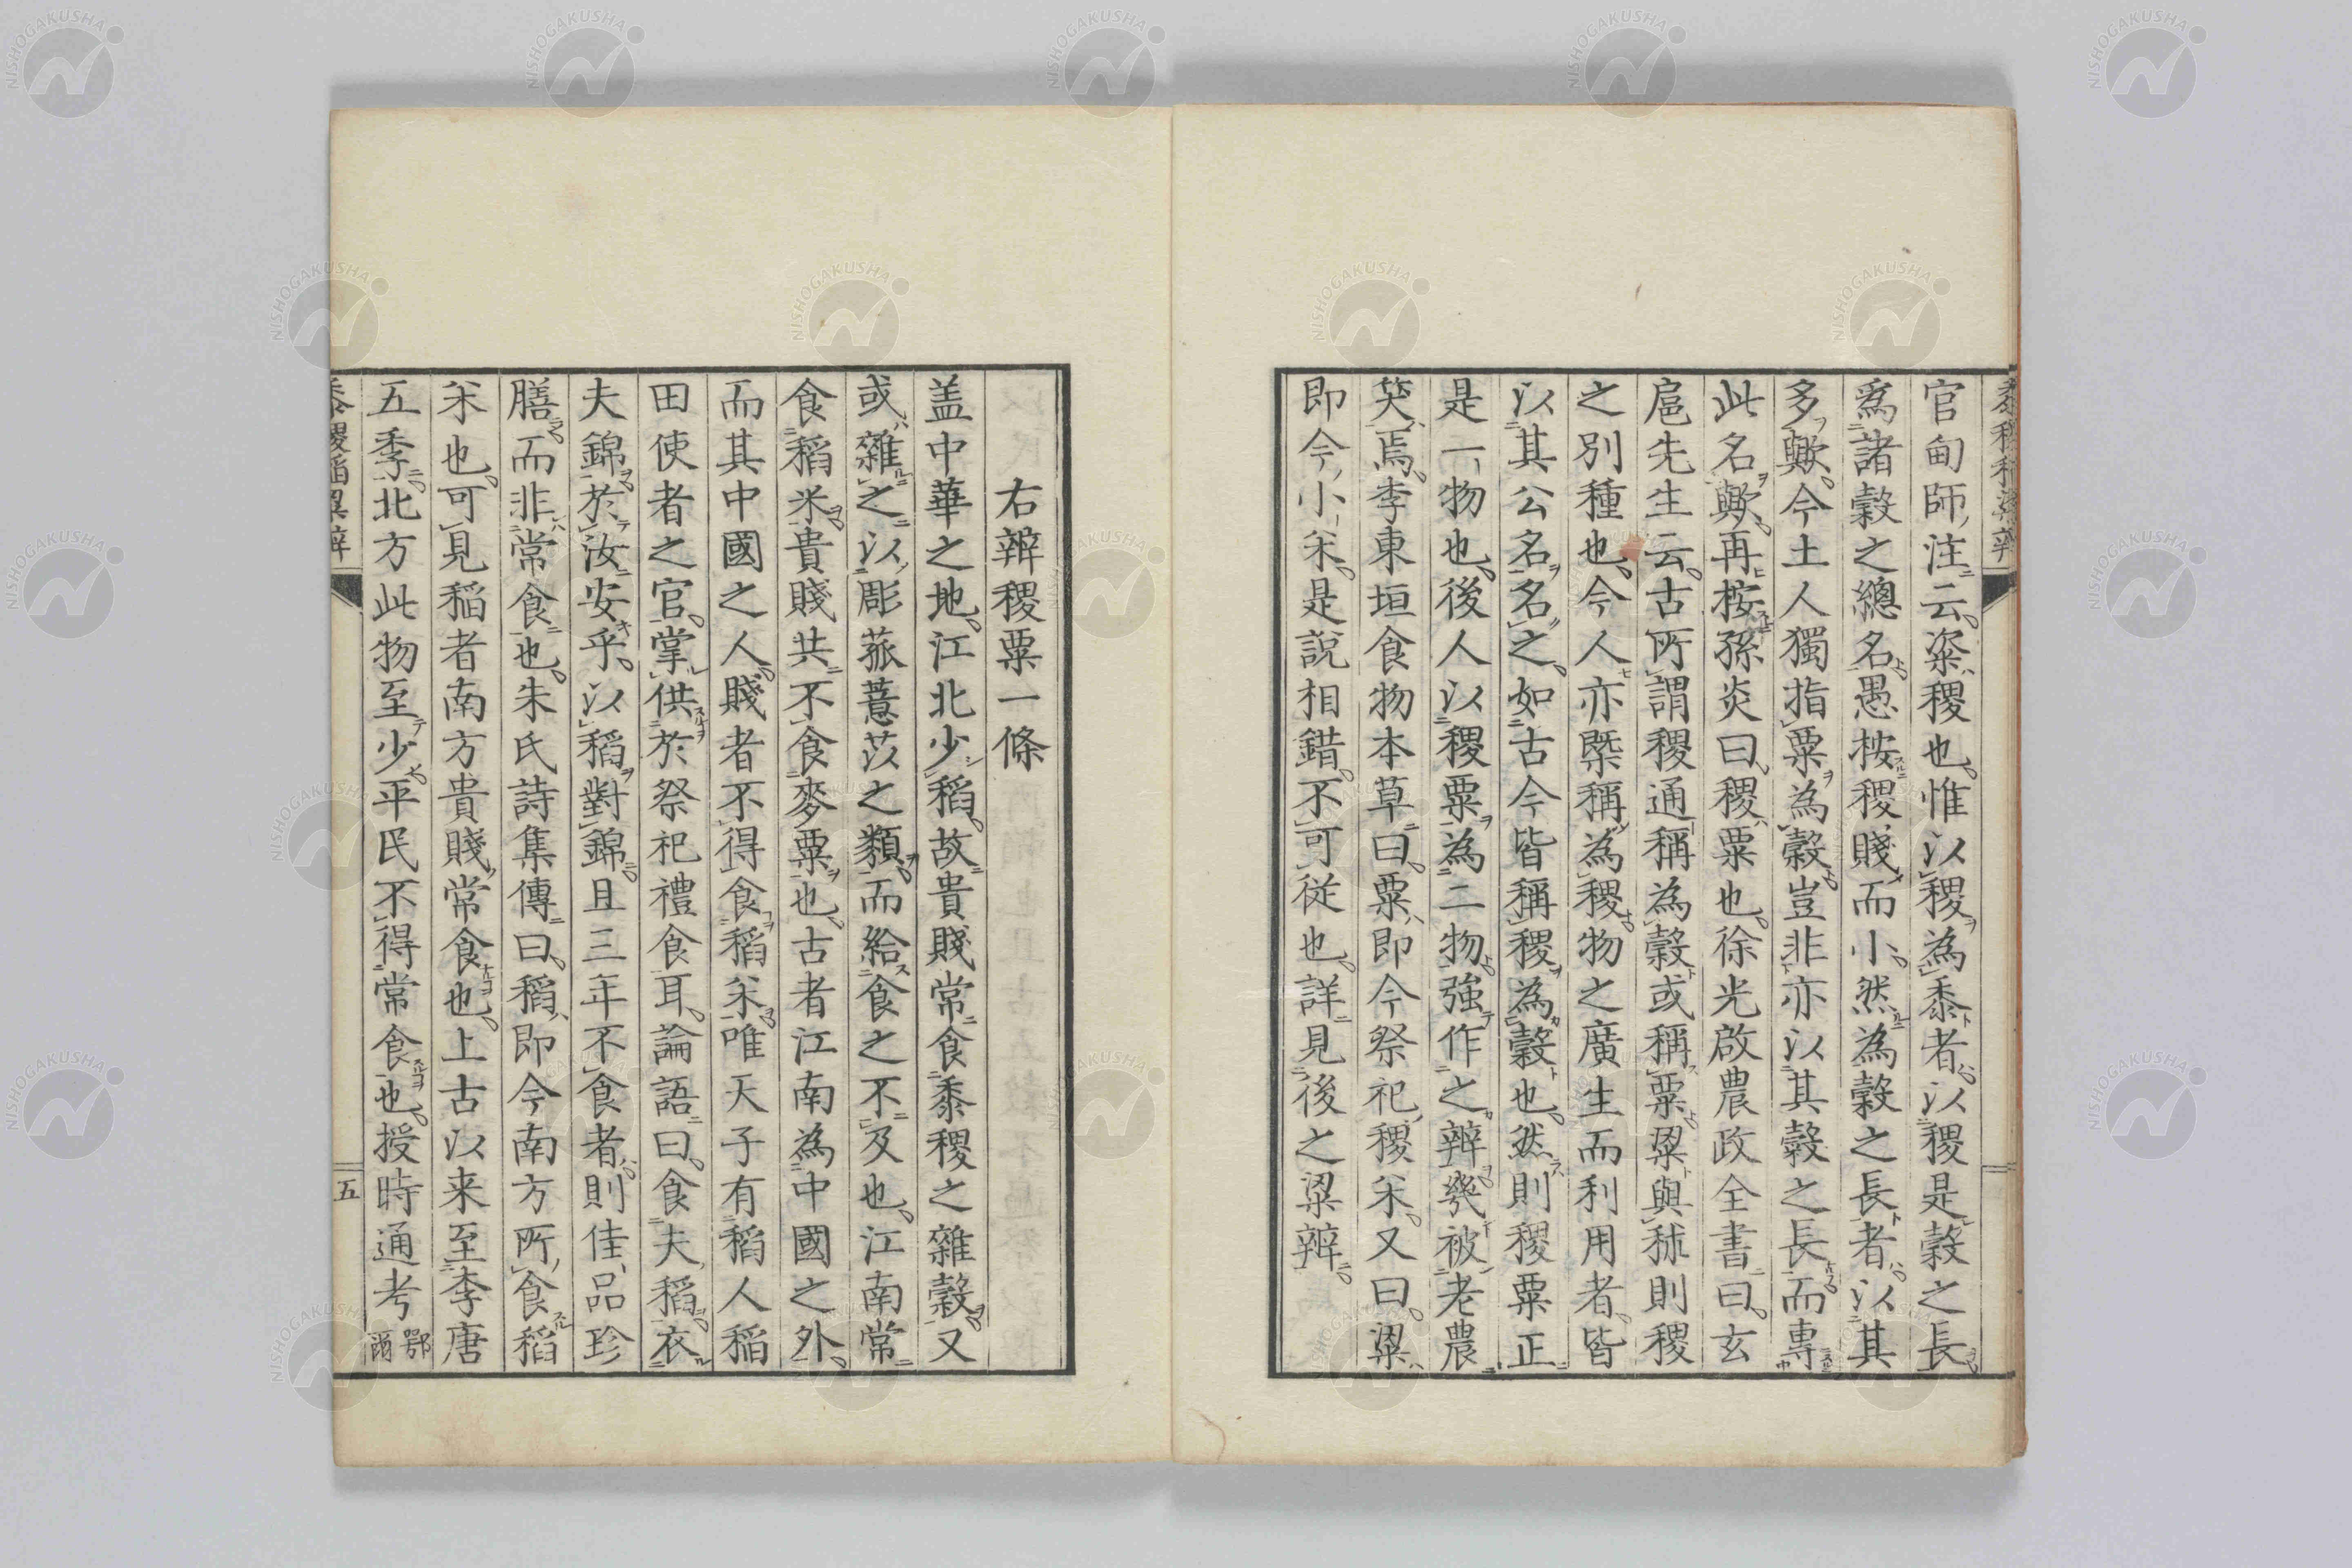 官甸師注云粢稷也惟以稷為黍者以稷是穀之長
爲諸穀之總名愚按稷賤而小然為穀之長者以其
多歟今土人獨指粟為穀豈非亦以其穀之長而專
此名歟再按孫炎曰稷粟也徐光啟農政全書曰玄
扈先生云古所謂稷通稱為穀或稱粟粱與秫則稷
之別種也今人亦槩稱為稷物之廣生而利用者皆
以其公名名之如古今皆稱稷為穀也然則稷粟正
是一物也後人以稷粟為二物強作之辨幾被老農
笑焉李東垣食物本草曰粟即今祭祀稷米又曰粱
即今小米是說相錯不可從也詳見後之粱辨
右辨稷粟一條
盖中華之地江北少稻故貴賤常食黍稷之雜穀又
或雜之以彫菰薏苡之類而給食之不及也江南常
食稻米貴賤共不食麥粟也古者江南為中國之外
而其中國之人賤者不得食稻米唯天子有稻人稻
田使者之官掌供於祭祀禮食耳論語曰食夫稻衣
夫錦於汝安乎以稻對錦且三年不食者則佳品珍
膳而非常食也朱氏詩集傳曰稻即今南方所食稻
米也可見稻者南方貴賤常食也上古以来至李唐
五季北方此物至少平民不得常食也授時通考鄂爾
五